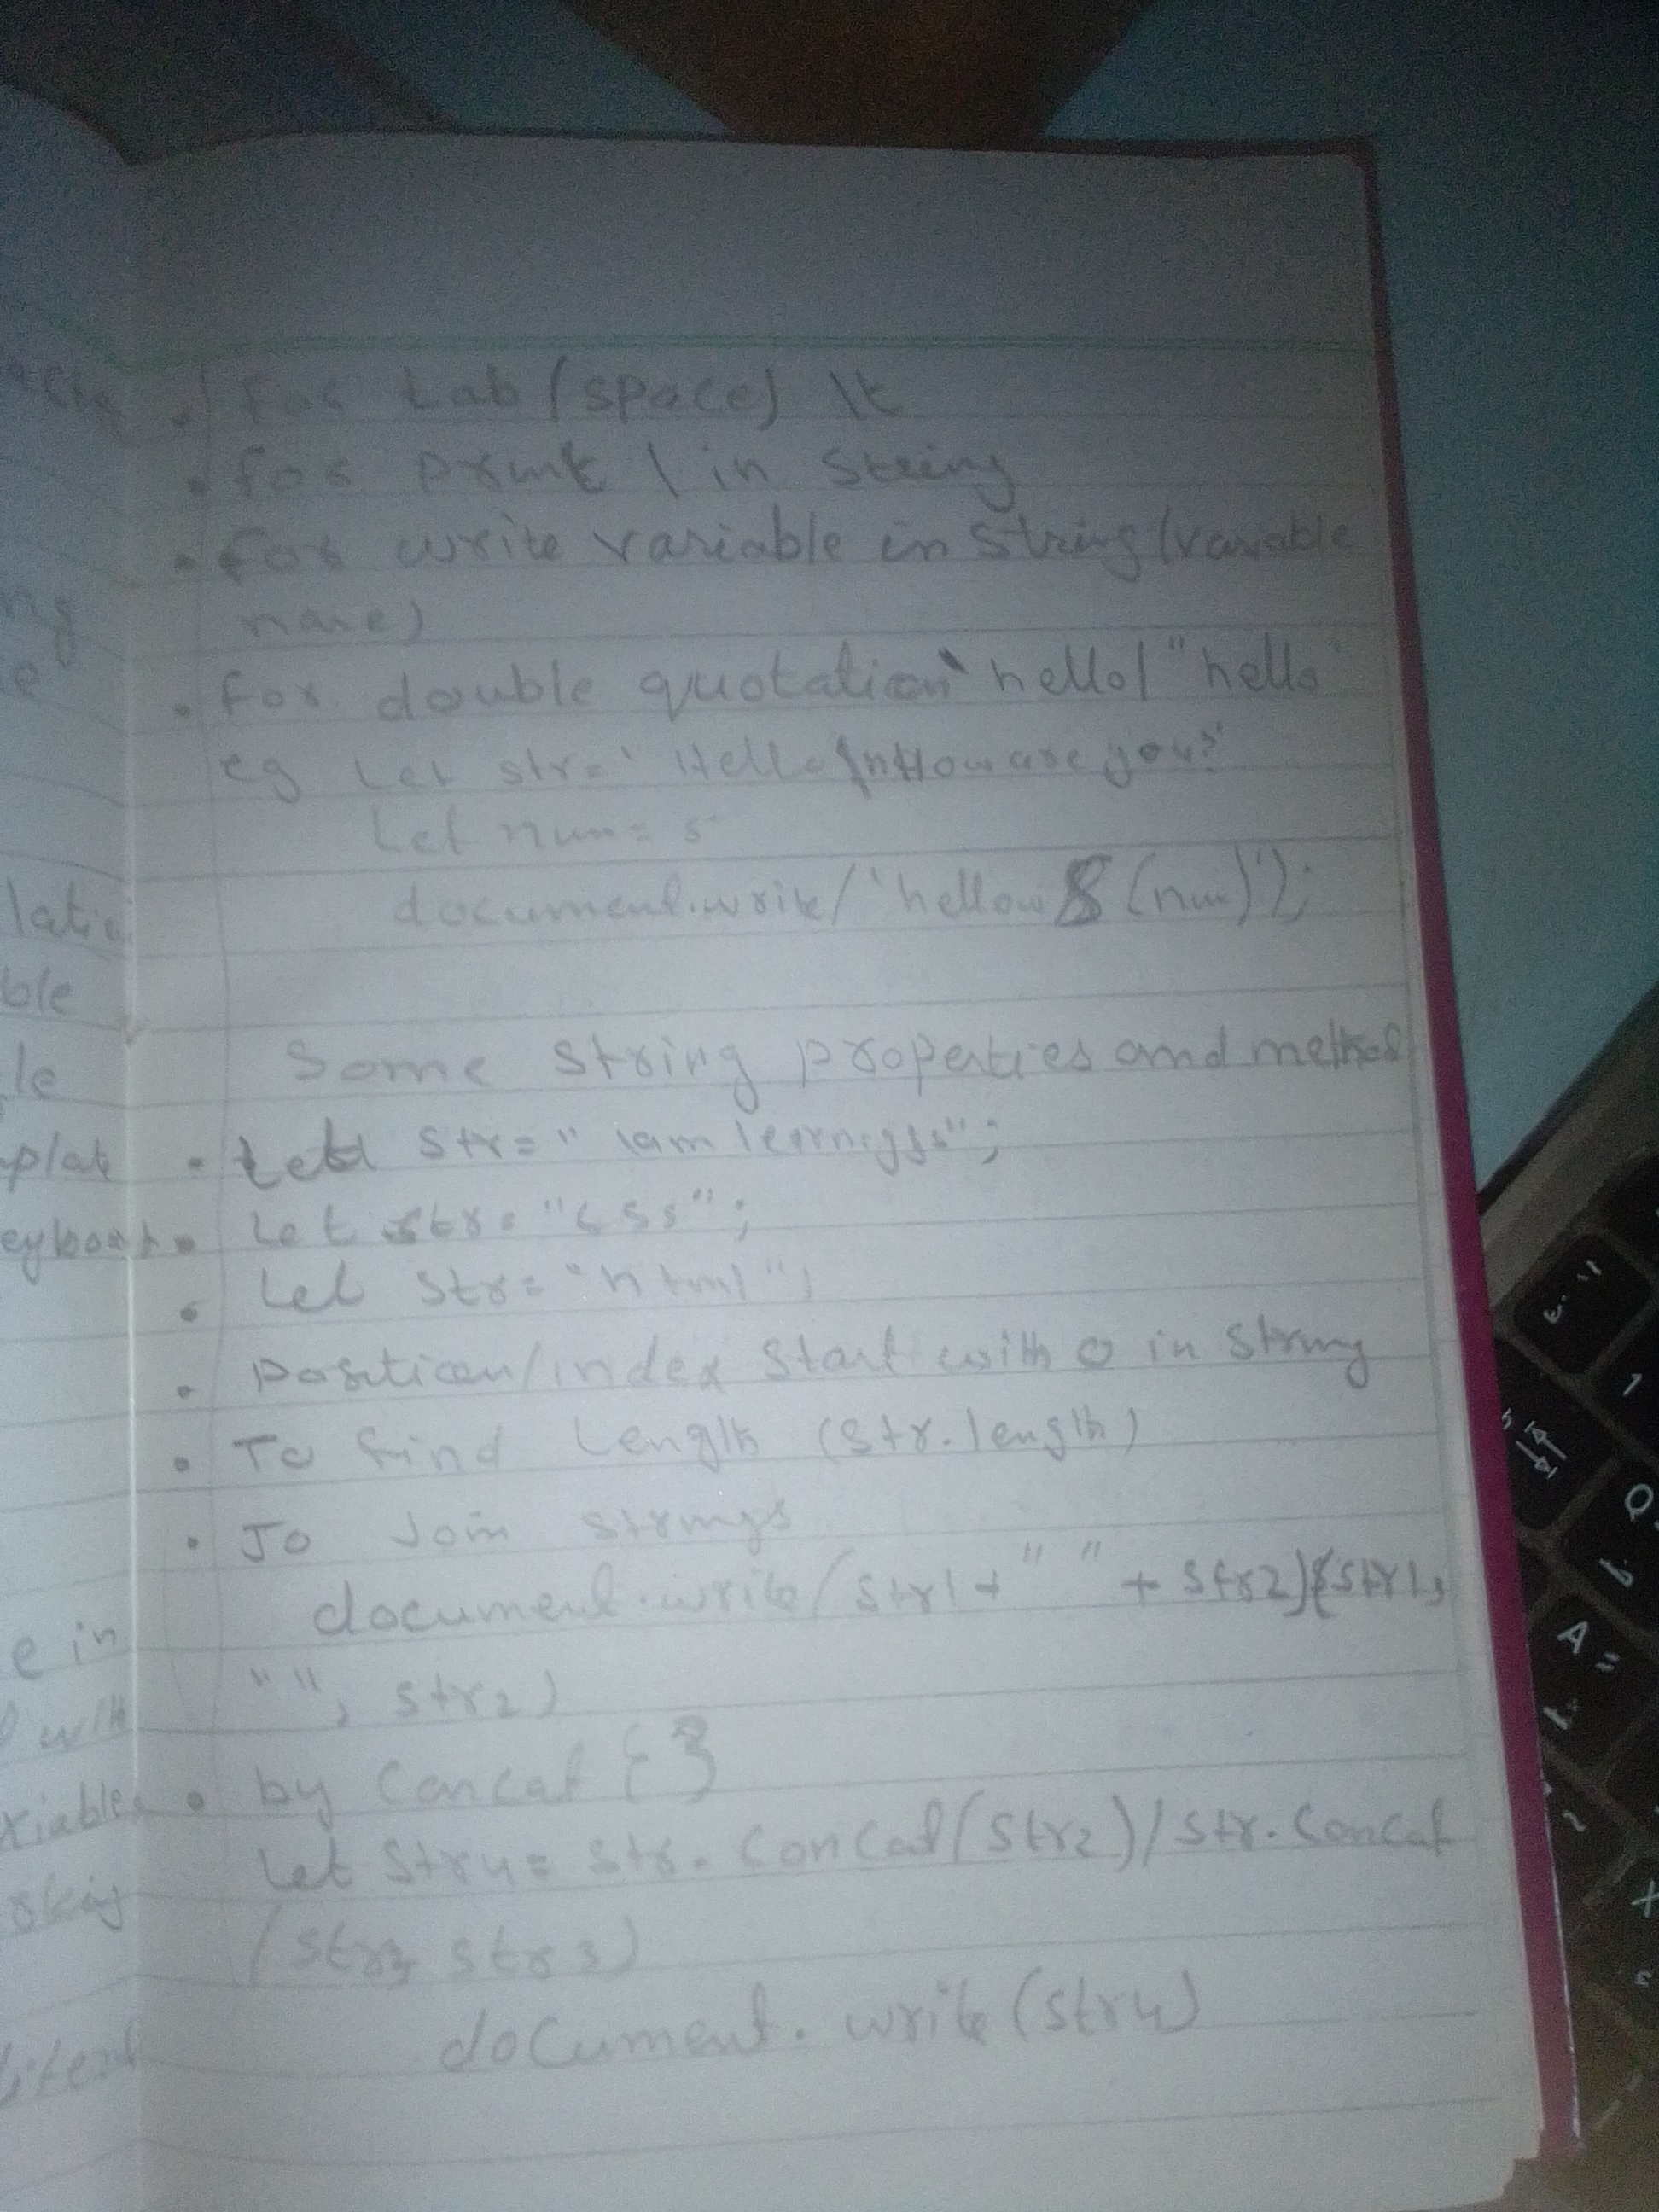 . for tab (space) \t
. for prink \ in string
. for write variable in string (variable
name)
. for double quotation hello| "hello"
eg Let str= ' Hello \nHow are you?'
Let num = 5
document.write( 'hellow $ (num)');
Some String properties and method
. Let str= " iam
Let str = "css";
. Let str = "html";
. Position/index start with 0 in string
. To find Length (str.length)
. To Join strings
document.write(str1 + " " + str2)(str1,
" ", str2)
. by Concat { }
Let str4 = str. Concat(str2)/str.Concat
(str2, str3)
document. write (str4)
lati
ble
le
plat
eyboar
e in
with
riable